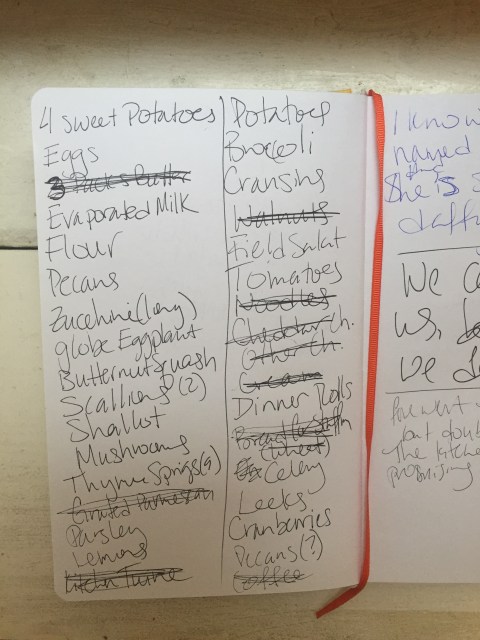 4 Sweet Potatoes
Eggs
3 Packs Butter
Evaporated Milk
Flour
Pecans
Zucchini (long)
globe Eggplant
Butternut Squash
Scallions (2)
Shallot
Mushrooms
Thyme Sprigs (9)
Grated Parmesan
Parsley
Lemons
Kitchen Twine
Potatoes
Broccoli
Cransins
Walnuts
Field Salat
Tomatoes
Noodles
Cheddar Ch.
Other Ch.
Cream
Dinner Rolls
Bread for Stuffin
(wheat)
Celery
Leeks
Cranberries
Pecans (?)
Coffee
I know
named
She is
daff
We
us,
we
but doub
the kitche
promising